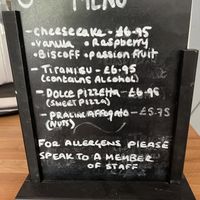 MENU
- cheesecake - £6.95
• vanilla • Raspberry
• Biscoff • passion fruit
- Tiramisu - £6.95
(contains alcohol)
- Dolce Pizzetta - £6.95
(sweet pizza)
- Praline Affogato - £5.75
(NUTS)
FOR ALLERGENS PLEASE
SPEAK TO A MEMBER
OF STAFF